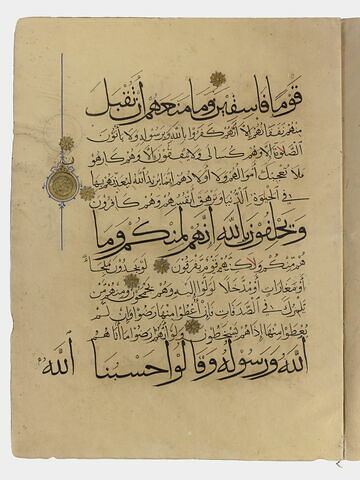 قوما فاسقين وما منعهم أن تقبل
منهم نفقاتهم إلا أنهم كفروا بالله وبرسوله ولا يأتون
الصلوة إلا وهم كسالى ولا ينفقون إلا وهم كارهو
ن فلا تعجبك أموالهم ولا أولادهم إنما يريد الله ليعذبهم بها
في الحيوة الدنيا وتزهق أنفسهم وهم كافرون
ويحلفون بالله إنهم لمنكم وما
هم منكم ولاكنهم قوم يفرقون لو يجدون ملجأ
أو مغارات أو مدخلا لولوا إليه وهم يجمحون ومنهم من
يلمزك في الصدقات فإن أعطوا منها رضوا وإن لم
يعطوا منها إذا هم يسخطون ولو أنهم رضوا ما آتاهم
الله ورسوله وقالوا حسبنا الله